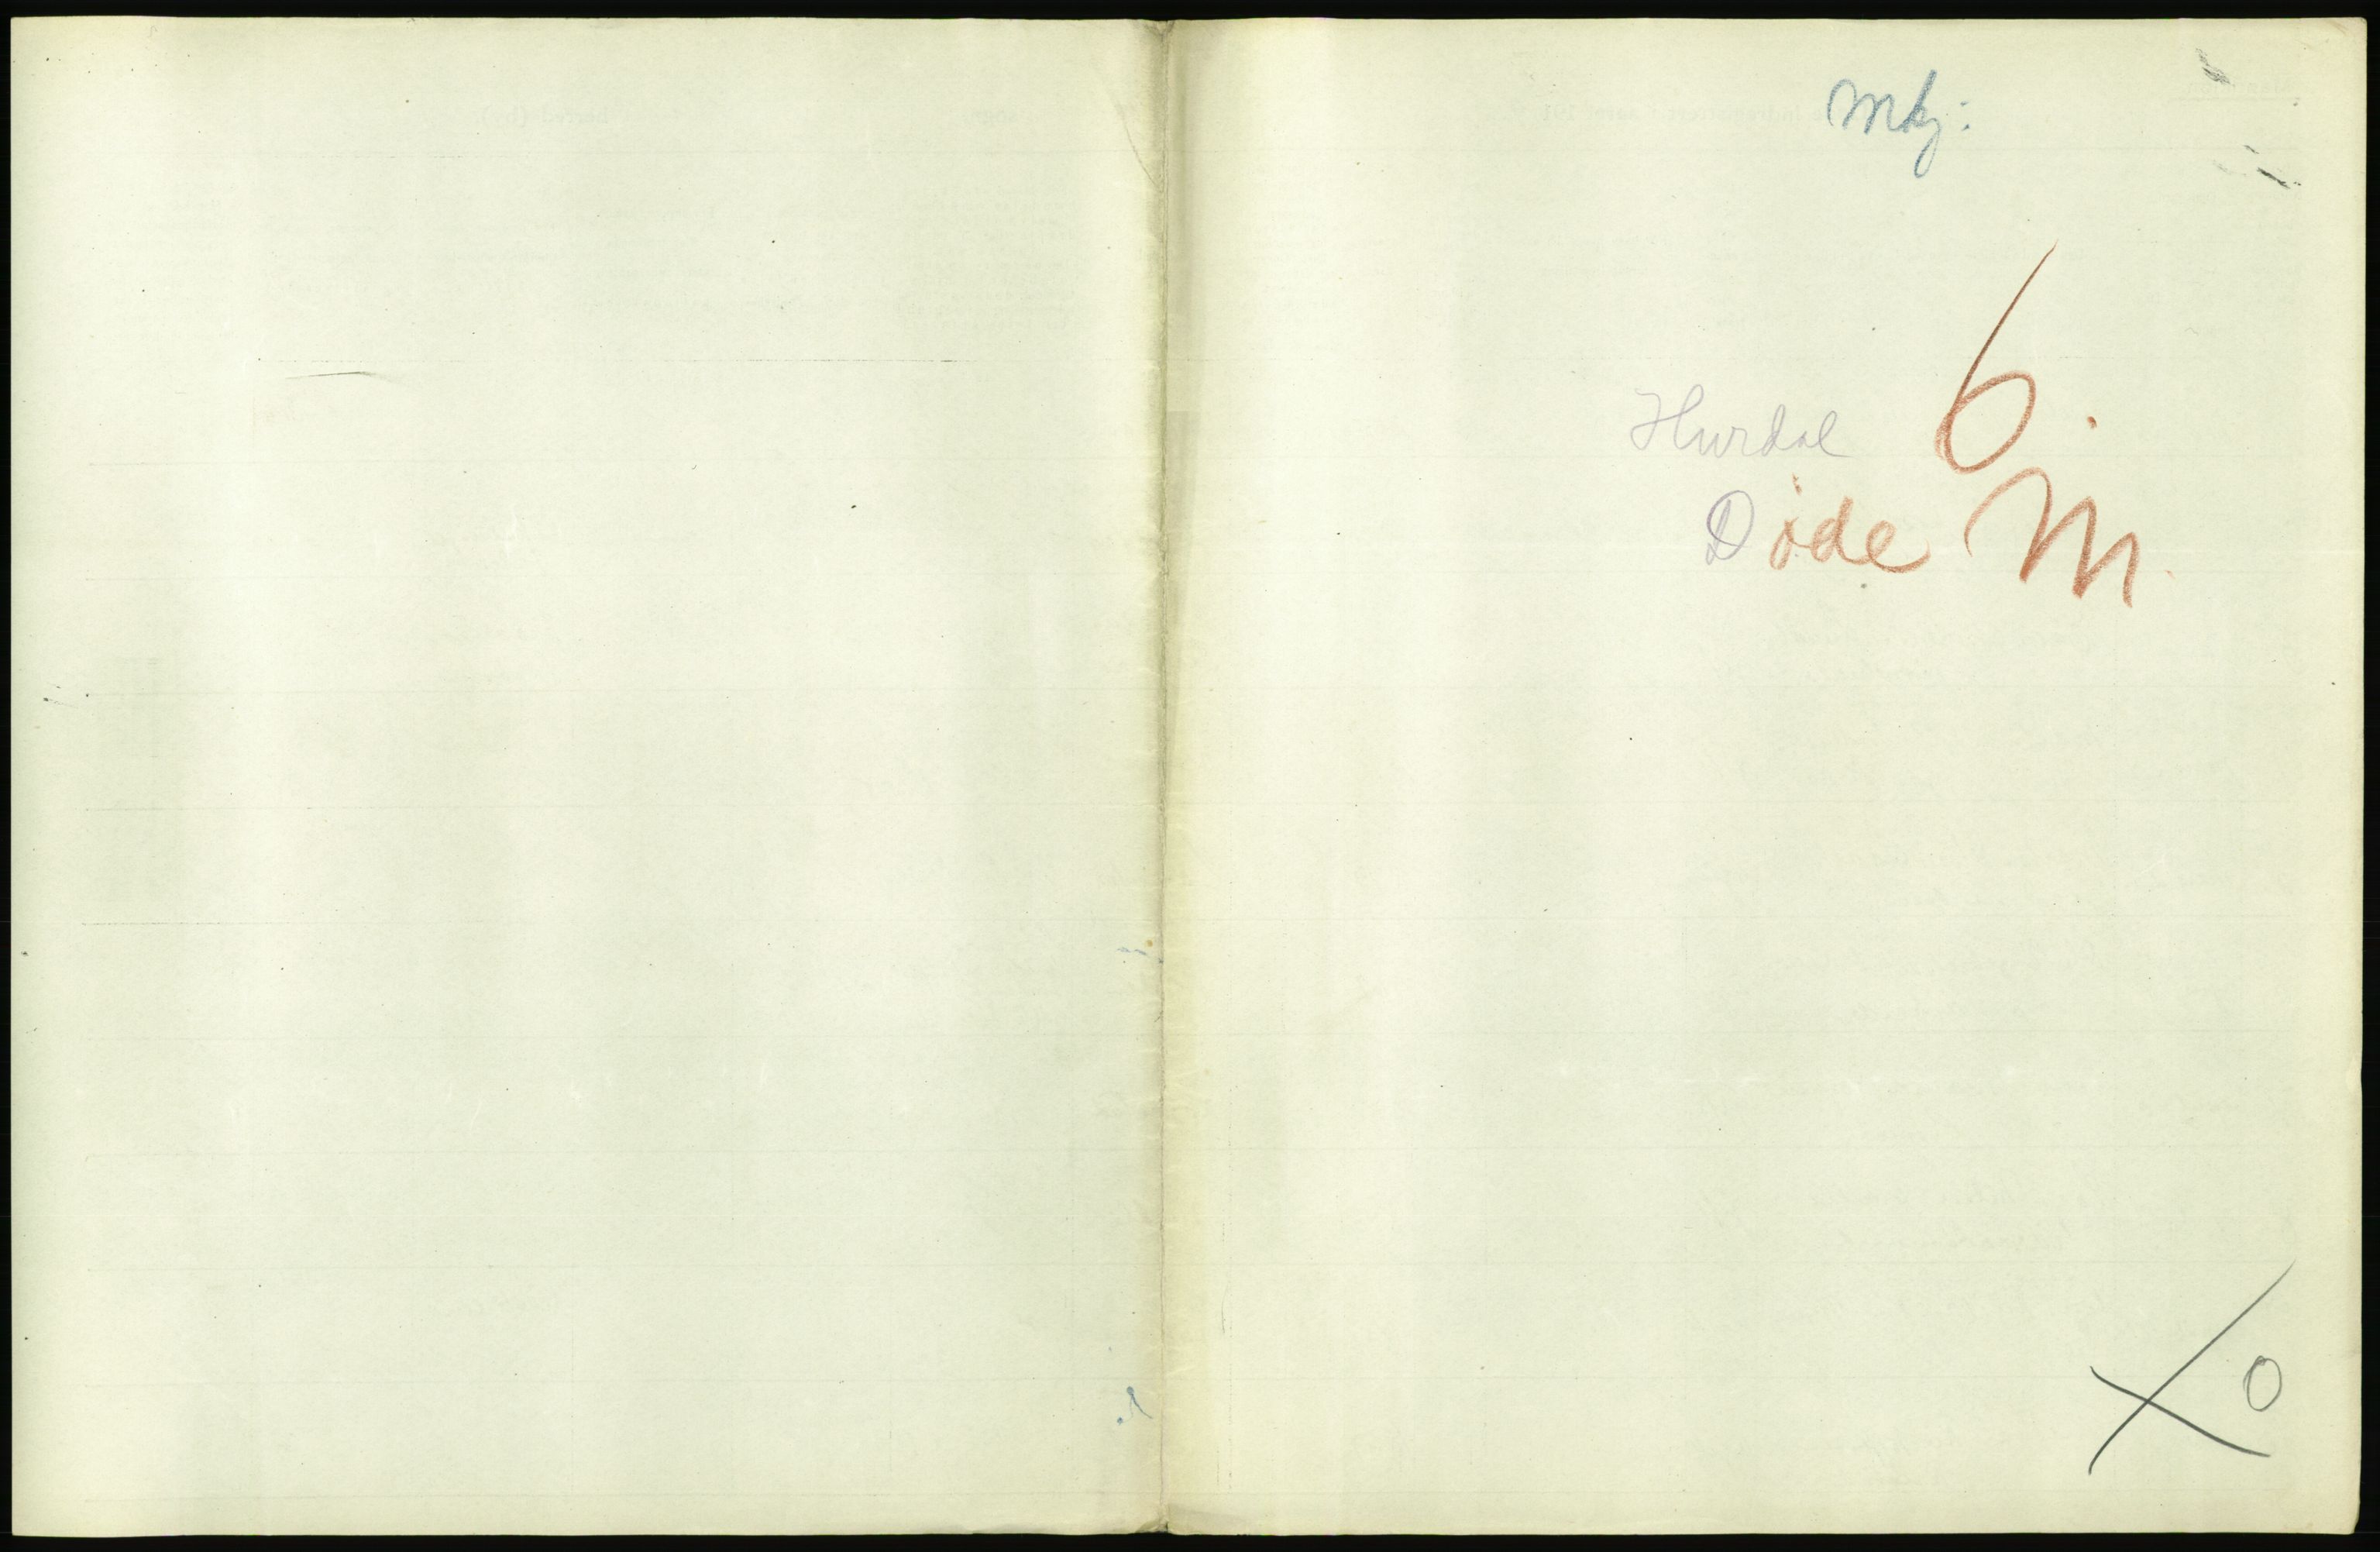 Mkj:
6.
Hurdal
Døde M.
X 0